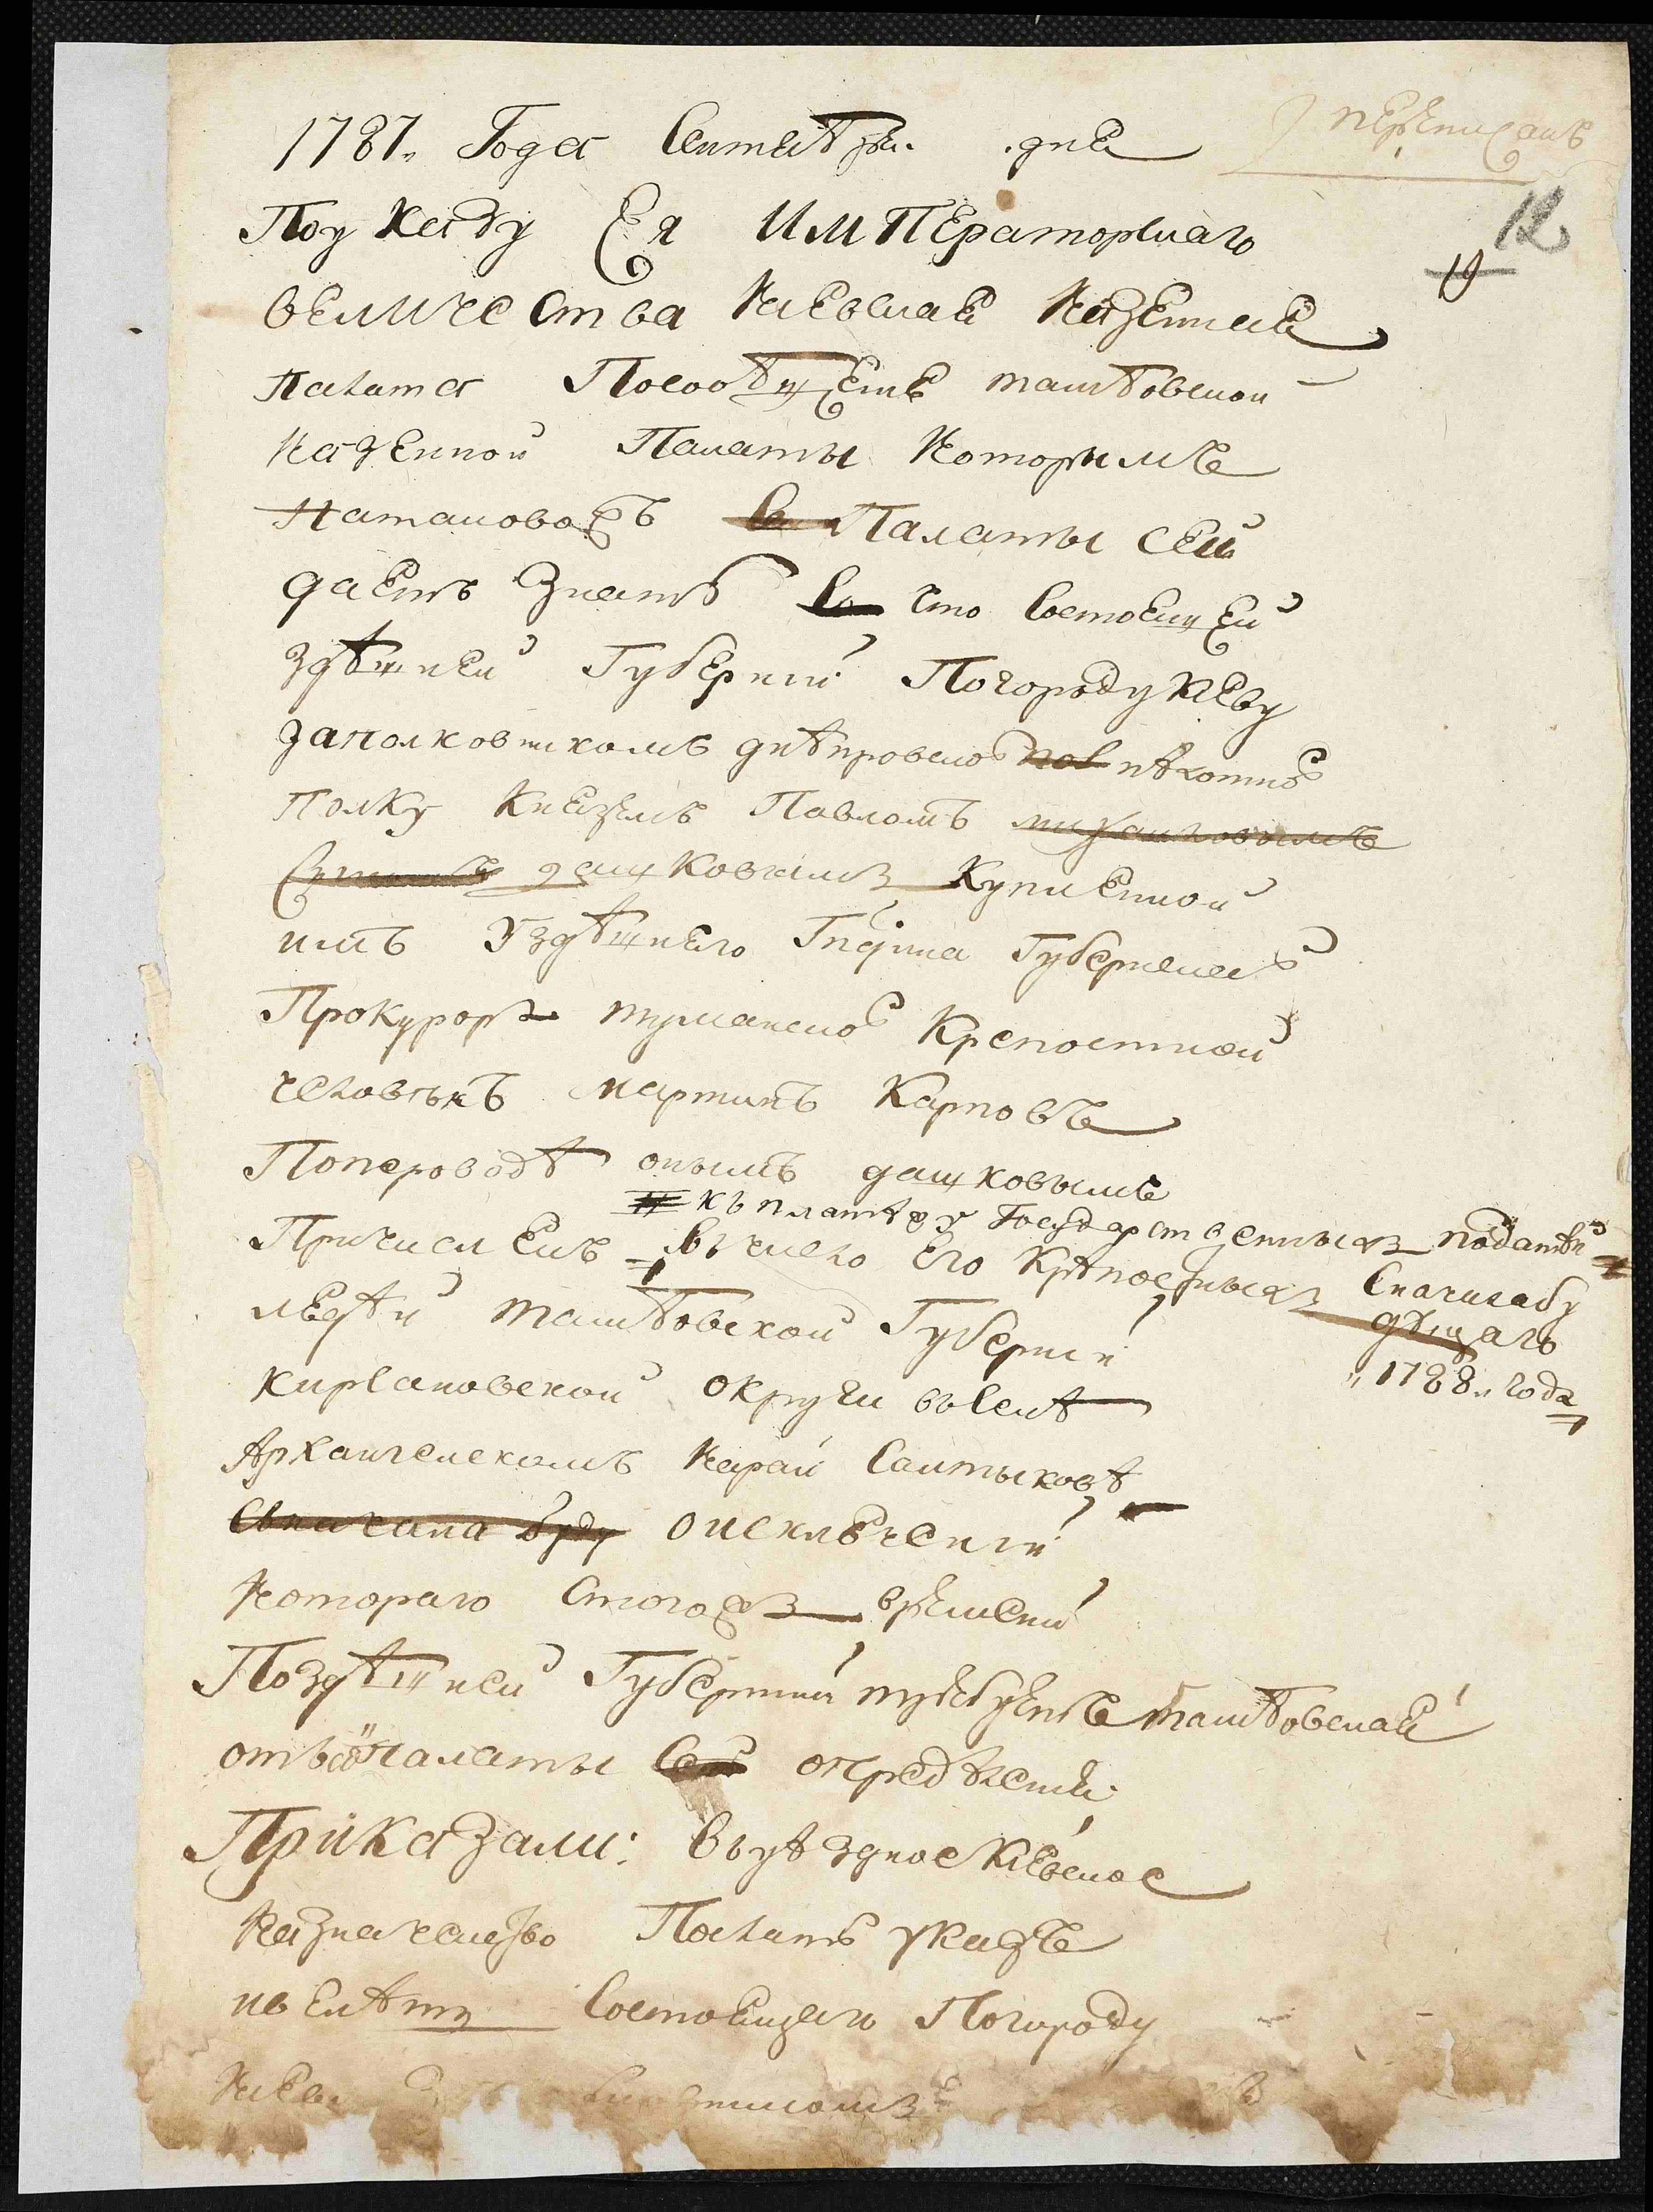 1787. Года Сентября. дня
переписанъ
12
Поуказу Ея ИМПЕраторскаго
величества киевская казенная
палата Посообщение тамбовской
казенной Палаты которымъ
Палаты сей
даетъ знать что Состоящей
здѣшней Губерніи Погороду Киеву
заполковникомъ днѣпровского пѣхотнаго
полку Княземъ Павломъ
дашковымъ купленной
имъ Уздѣшнего Гпдина Губернскаго
Прокурора туманского Крепостной
человѣкъ мартинъ Карповъ
Поперьводѣ онымъ дашковымъ
къ платежу Государственныхъ податей
Причисленъ вчисло Его крѣпостныхъ Сначалабу
дущаго
1788. года
тамбовской Губерніи
кирсановской округи всѣлѣ
Архангелскомъ Карай Салтыковѣ
Сначала буду оисключеніи
котораго Стогожъ времени
Поздѣшней Губерніи требуетъ тамбовская
палаты определенія
Приказали: вуѣздное Киевское
казначейство Послать указъ
ивелѣть Состоящего Погороду